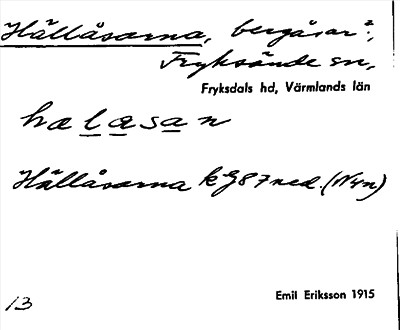 Hällåsarna, bergåsar?,
Fryksände sn,
Fryksdals hd, Värmlands län
hælasan
Hällåsarna kg 87 ned. (N4n)
Emil Eriksson 1915
13